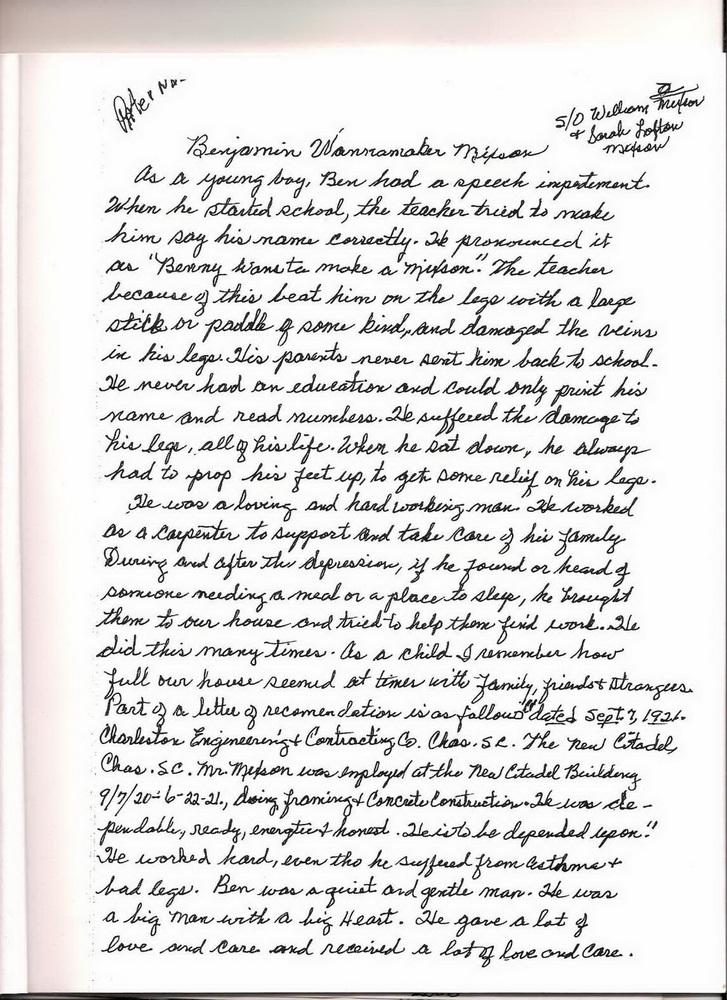 S/O William Mixson
& Sarah Lofton
Mixson
Benjamin Wannamaker Mixson
As a young boy, Ben had a speech impediment.
When he started school, the teacher tried to make
him say his name correctly. He pronounced it
as "Benny wants to make a Mixson". The teacher
because of this beat him on the legs with a large
stick or paddle of some kind, and damaged the veins
in his legs. His parents never sent him back to school.
He never had an education and could only print his
name and read numbers. He suffered the damage to
his legs, all of his life. When he sat down, he always
had to prop his feet up, to get some relief on his legs.
He was a loving and hard working man. He worked
as a carpenter to support and take care of his family.
During and after the depression, if he found or heard of
someone needing a meal or a place to sleep, he brought
them to our house and tried to help them find work. He
did this many times. As a child I remember how
full our house seemed at times with family, friends & strangers.
Part of a letter of recomendation is as follows "dated Sept. 7, 1921.
Charleston Engineering & Contracting Co. Chas. S.C. The New Citadel,
Chas. S.C. Mr. Mixson was employed at the New Citadel Building
9/7/20-6-22-21., doing framing & Concrete Construction. He was de-
pendable, ready, energtic & honest. He is to be depended upon."
He worked hard, even tho he suffered from asthma &
bad legs. Ben was a quiet and gentle man. He was
a big man with a big Heart. He gave a lot of
love and care and received a lot of love and care.